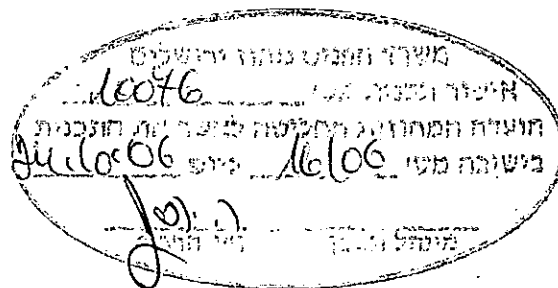 משרד הפנים מחוז ירושלים
אישור תכנית מס' 10076
הועדה המחוזית החליטה לאשר את התכנית
בישיבה מס' 16/06 ביום 24.10.06
מינהל תכנון יו"ר הועדה